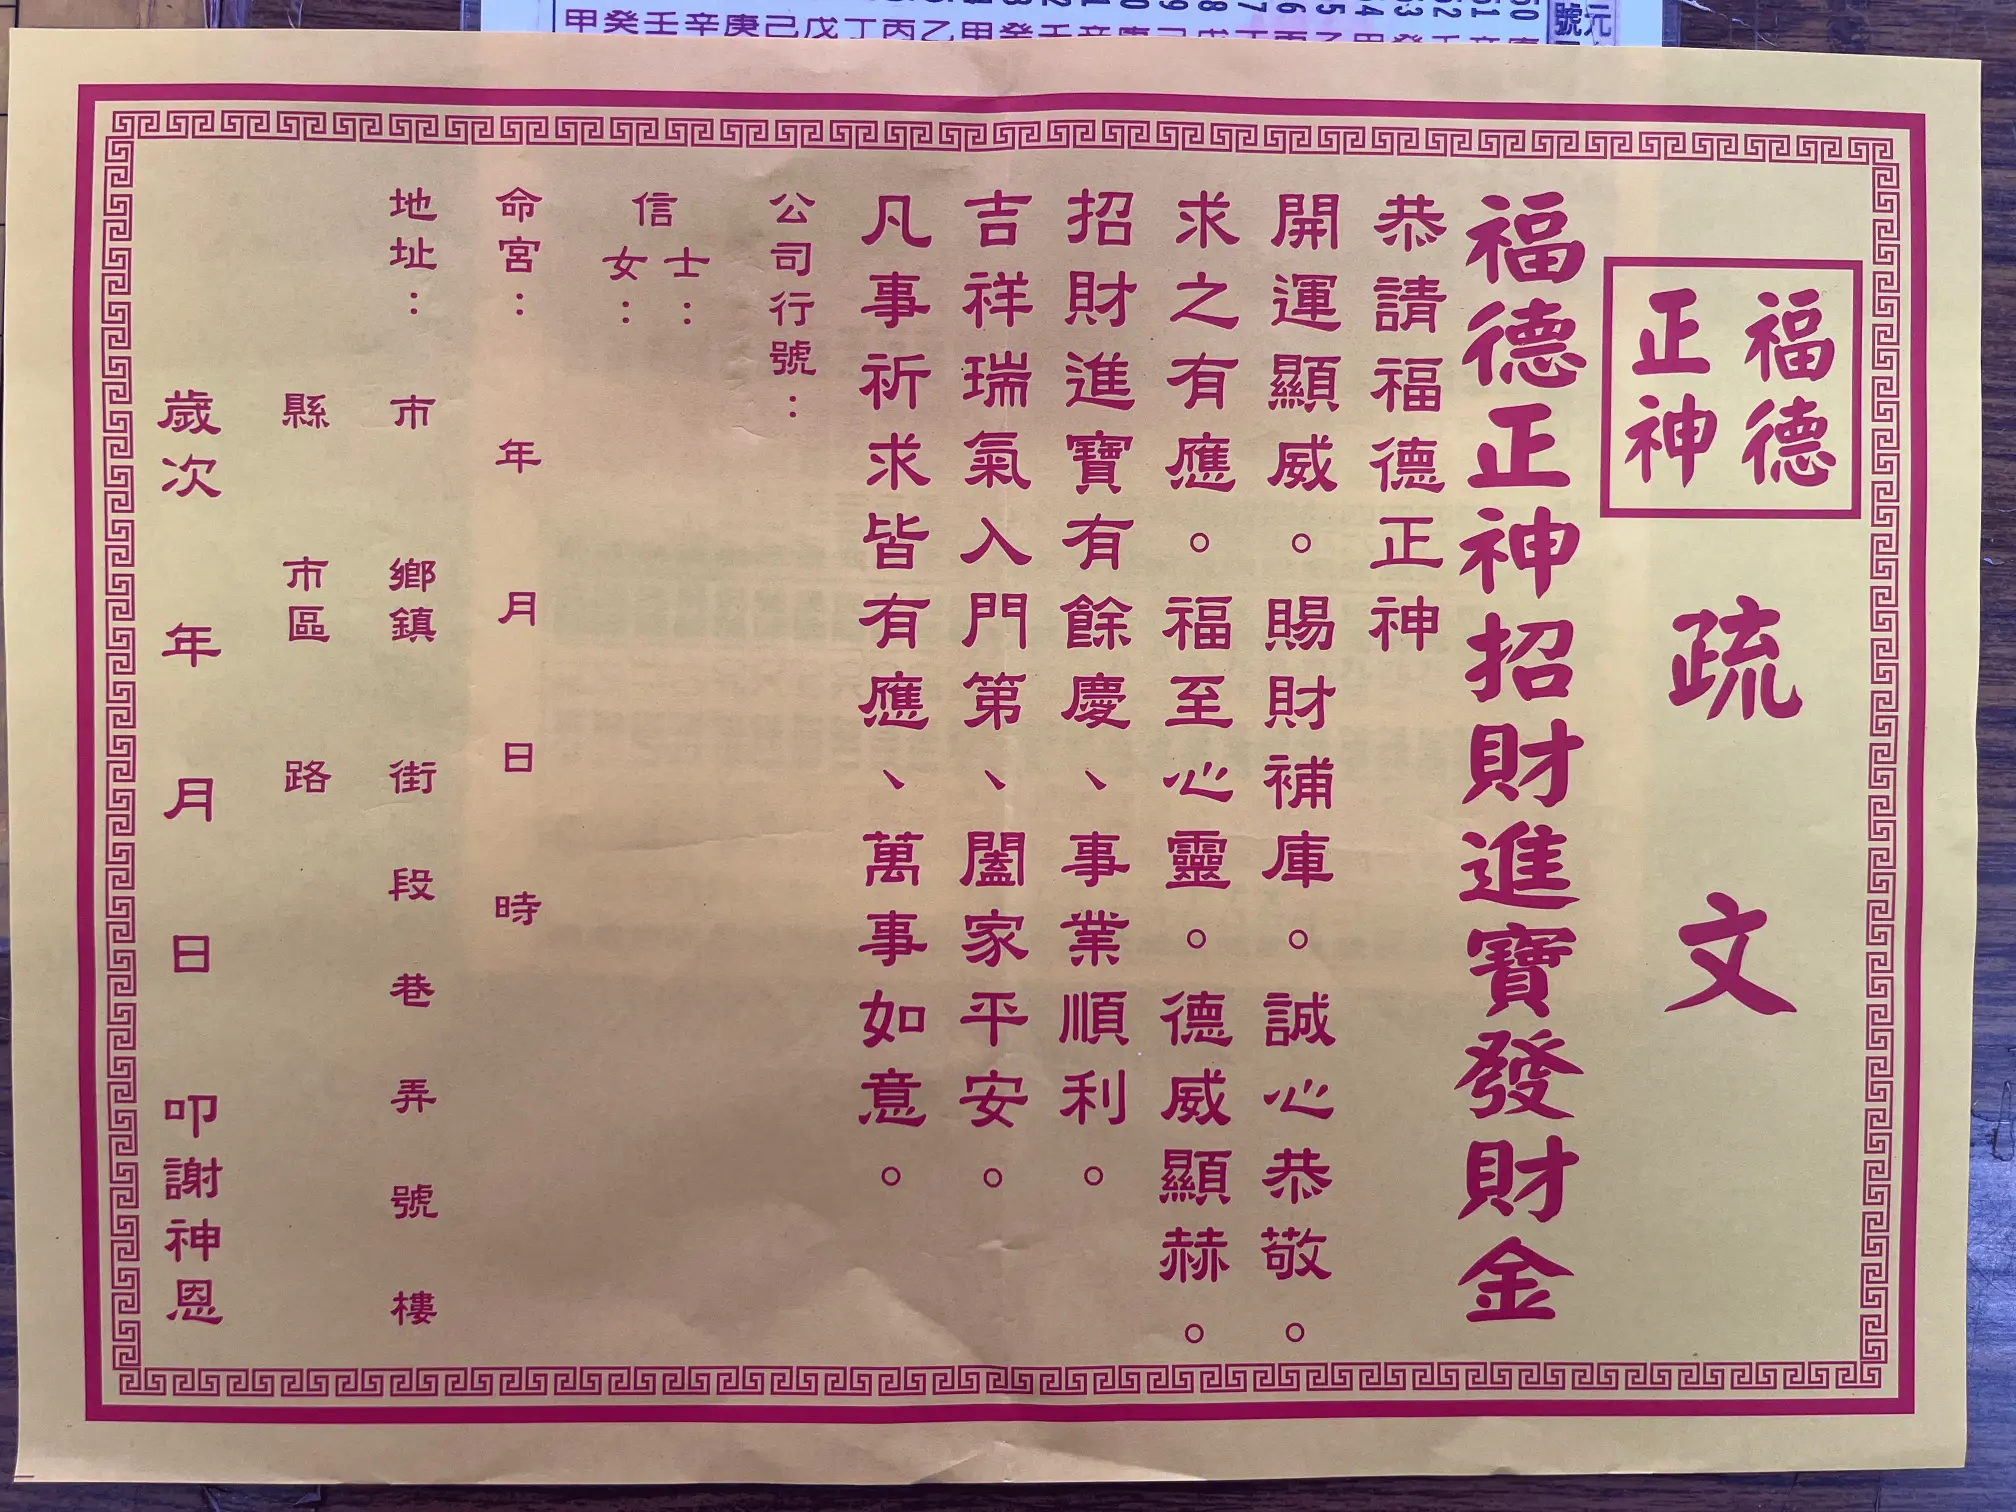 福德
正神
疏文
福德正神招財進寶發財金
恭請福德正神
開運顯威。賜財補庫。誠心恭敬。
求之有應。福至心靈。德威顯赫。
招財進寶有餘慶、事業順利。
吉祥瑞氣入門第、闔家平安。
凡事祈求皆有應、萬事如意。
公司行號：
信士：
女：
命宮： 年 月 日 時
地址： 市 鄉鎮 街 段 巷 弄 號 樓
縣 市區 路
歲次 年 月 日 叩謝神恩
甲癸壬辛庚己戊丁丙乙甲癸壬辛庚己戊丁丙乙甲癸壬辛庚